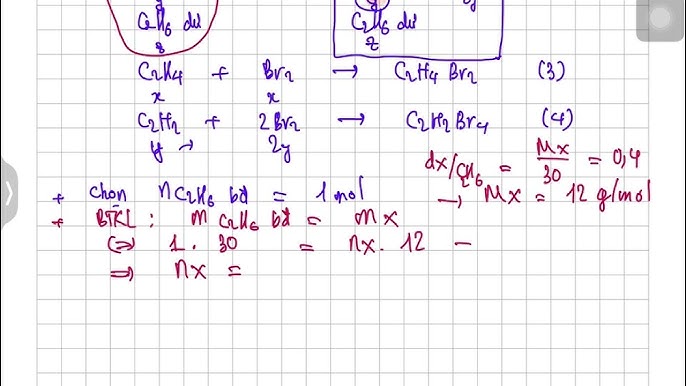 y y
C2H6 dư C2H6 dư
z z
C2H4 + Br2 → C2H4Br2 (3)
x x
C2H2 + 2Br2 → C2H2Br4 (4)
y → 2y
dX/C2H6 = MX/30 = 0,4
+ Chọn nC2H6 bđ = 1 mol → MX = 12 g/mol
+ BTKL : mC2H6 bđ = mX
(=) 1 . 30 = nX . 12 –
⇒ nX =